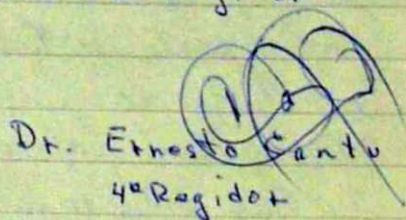 Dr. Ernesto Cantu
4º Regidor